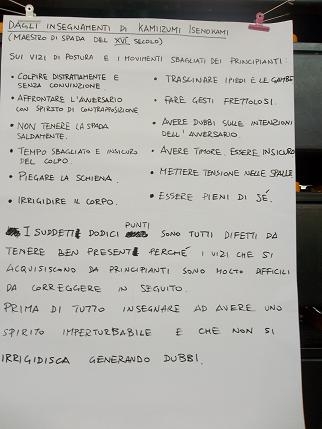 DAGLI INSEGNAMENTI DI KAMIIZUMI ISENOKAMI
(MAESTRO DI SPADA DEL XVI SECOLO)
SUI VIZI DI POSTURA E I MOVIMENTI SBAGLIATI DEI PRINCIPIANTI:
• COLPIRE DISTRATTAMENTE E
SENZA CONVINZIONE.
• AFFRONTARE L'AVVERSARIO
CON SPIRITO DI CONTRAPPOSIZIONE
• NON TENERE LA SPADA
SALDAMENTE.
• TEMPO SBAGLIATO E INSICURO
DEL COLPO.
• PIEGARE LA SCHIENA.
• IRRIGIDIRE IL CORPO.
• TRASCINARE I PIEDI E LE GAMBE
• FARE GESTI FRETTOLOSI.
• AVERE DUBBI SULLE INTENZIONI
DELL'AVVERSARIO.
• AVERE TIMORE. ESSERE INSICURO
• METTERE TENSIONE NELLE SPALLE
• ESSERE PIENI DI SÉ.
I SUDDETTI DODICI PUNTI SONO TUTTI DIFETTI DA
TENERE BEN PRESENTI PERCHÉ I VIZI CHE SI
ACQUISISCONO DA PRINCIPIANTI SONO MOLTO DIFFICILI
DA CORREGGERE IN SEGUITO.
PRIMA DI TUTTO INSEGNARE AD AVERE UNO
SPIRITO IMPERTURBABILE E CHE NON SI
IRRIGIDISCA GENERANDO DUBBI.